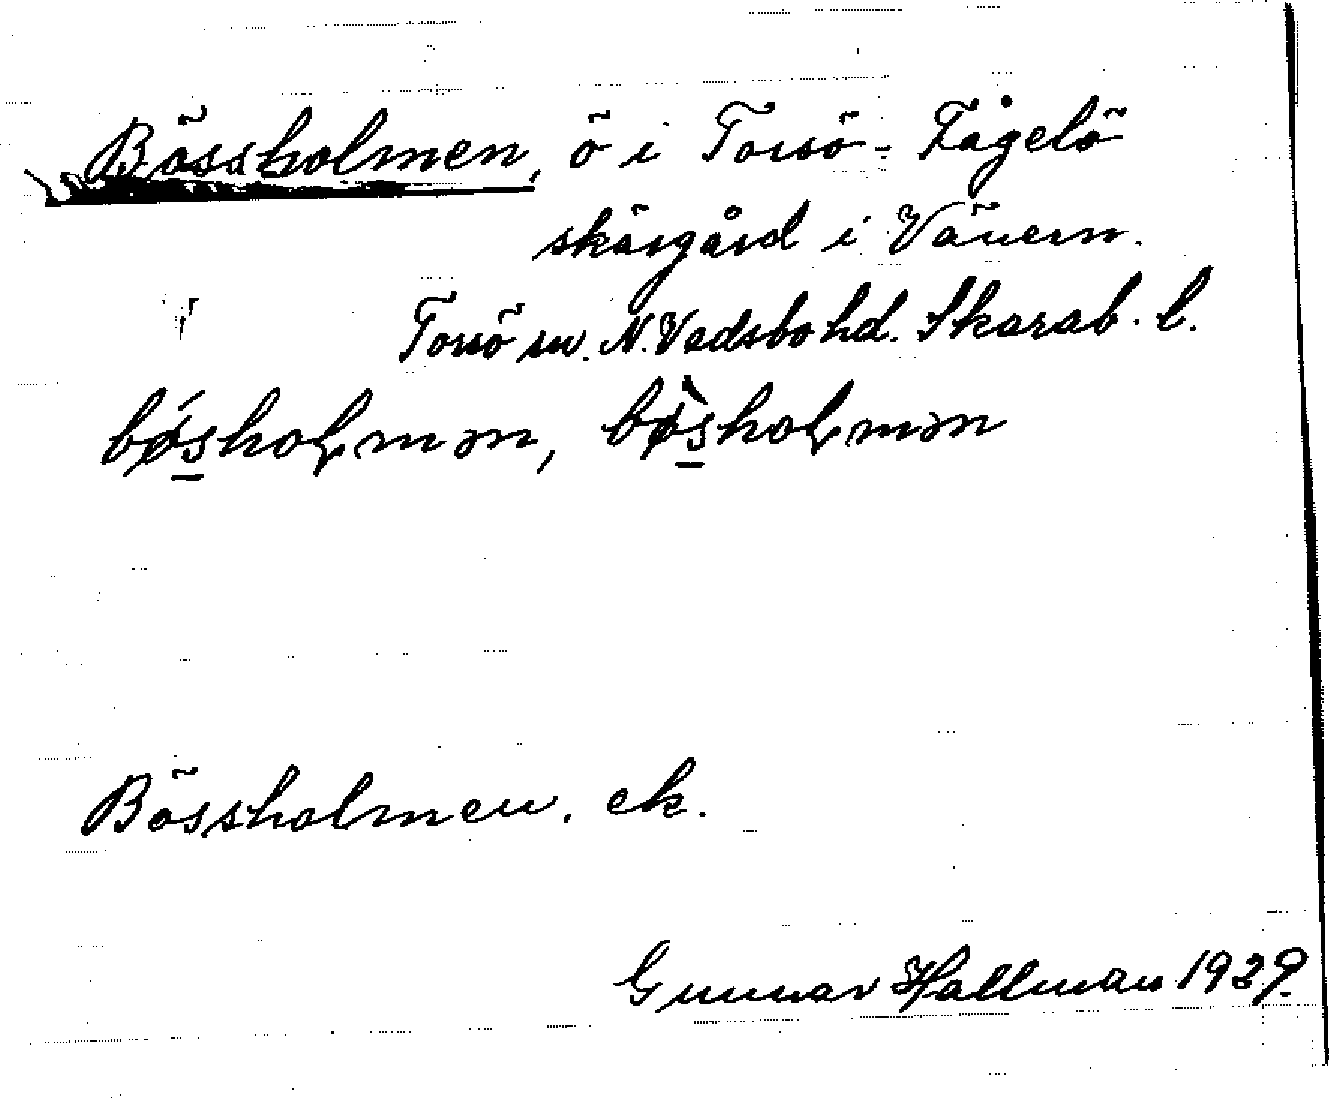 Bössholmen, ö i Torsö-Fågelö
skärgård i Vänern.
Torsö sn. N. Vadsbo hd. Skarab. l.
bǿs̲hoɫmən, bø̀s̲hoɫmən
Bössholmen. ek.
Gunnar Hallman 1929.